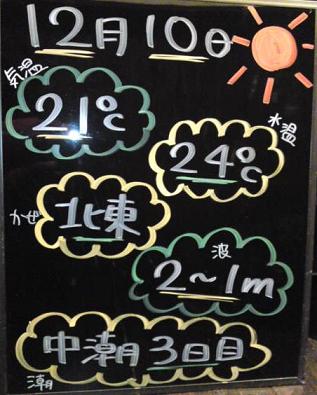 12月10日
気温
21℃
水温
24℃
かぜ
北東
波
2～1m
中潮3日目
潮